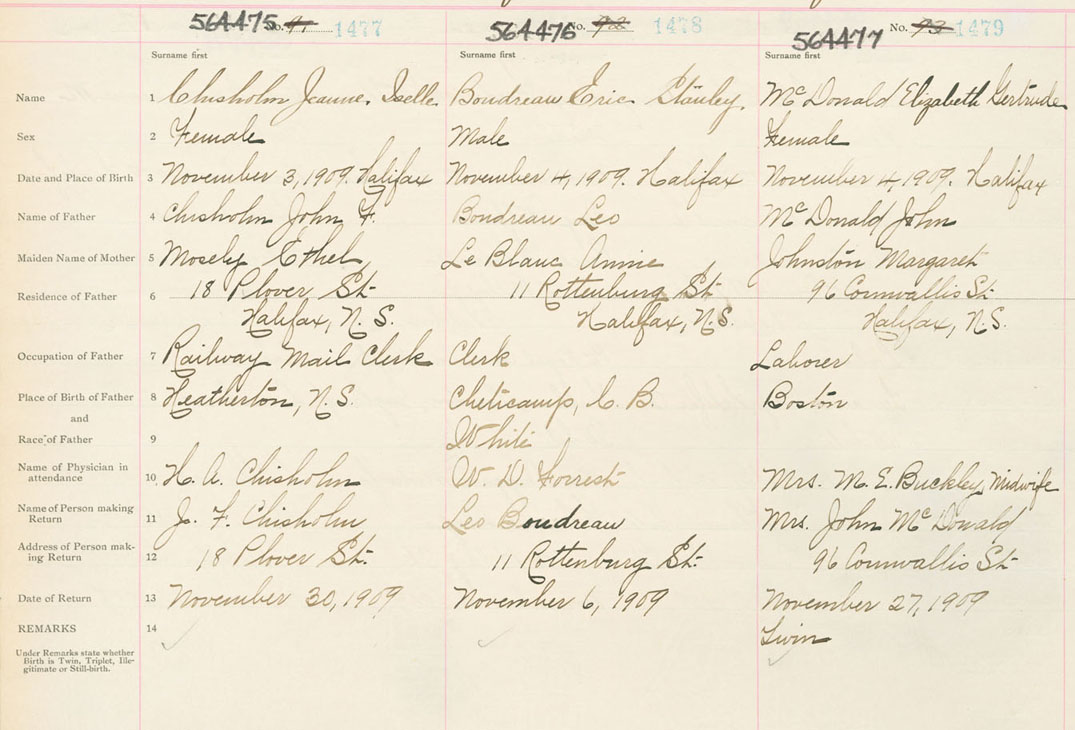 564475 No. 91 1477 564476 No. 92 1478 564477 No. 93 1479
Surname first Surname first Surname first
Name 1 Chisholm Jeanne, Iselle Boudreau Eric Stanley. McDonald Elizabeth Gertrude
Sex 2 Female Male Female
Date and Place of Birth 3 November 3, 1909. Halifax November 4, 1909. Halifax November 4, 1909. Halifax
Name of Father 4 Chisholm John F. Boudreau Leo McDonald John
Maiden Name of Mother 5 Mosely Ethel Le Blanc Annie Johnston Margaret
Residence of Father 6 18 Plover St. 11 Rottenburg St. 96 Cornwallis St.
Halifax, N.S. Halifax, N.S. Halifax, N.S.
Occupation of Father 7 Railway Mail Clerk Clerk Laborer
Place of Birth of Father 8 Heatherton, N.S. Cheticamp, C.B. Boston
and
Race of Father 9 White
Name of Physician in
attendance 10 H. A. Chisholm W. D. Forrest Mrs. M. E. Buckley, Midwife
Name of Person making
Return 11 J. F. Chisholm Leo Boudreau Mrs. John McDonald
Address of Person mak-
ing Return 12 18 Plover St. 11 Rottenburg St. 96 Cornwallis St.
Date of Return 13 November 30, 1909 November 6, 1909 November 27, 1909
REMARKS 14 Twin
Under Remarks state whether
Birth is Twin, Triplet, Ille-
gitimate or Still-birth.